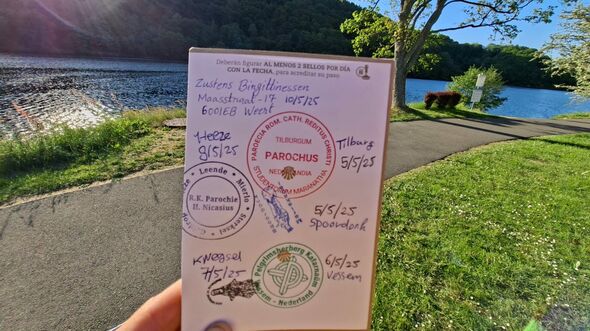 Deberán figurar AL MENOS 2 SELLOS POR DÍA
CON LA FECHA, para acreditar su paso
Zusters Birgittinessen
Maasstraat-17 10/5/25
6001EB Weert
Heeze
9/5/25
PAROECIA ROM. CATH. REDITUS CHRISTI
TILBURGUM
PAROCHUS
NEDERLANDIA
STUDENTORUM MARANATHA
Tilburg
5/5/25
Leende Mierlo
R.K. Parochie
H. Nicasius
5/5/25
Spoordonk
Knegsel
7/5/25
Pelgrimsherberg Kafarnaüm
Vessem - Nederland
6/5/25
Vessem